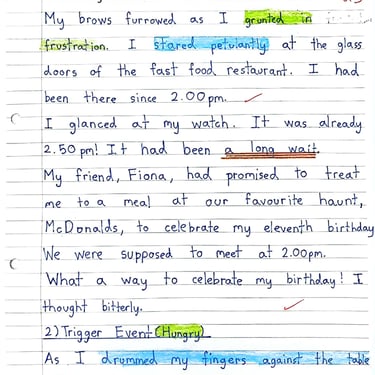 My brows furrowed as I grunted in
frustration. I stared petulantly at the glass
doors of the fast food restaurant. I had
been there since 2.00pm.
I glanced at my watch. It was already
2.50 pm! It had been a long wait.
My friend, Fiona, had promised to treat
me to a meal at our favourite haunt,
McDonalds, to celebrate my eleventh birthday
We were supposed to meet at 2.00pm.
What a way to celebrate my birthday! I
thought bitterly.
2) Trigger Event (Hungry)
As I drummed my fingers against the table